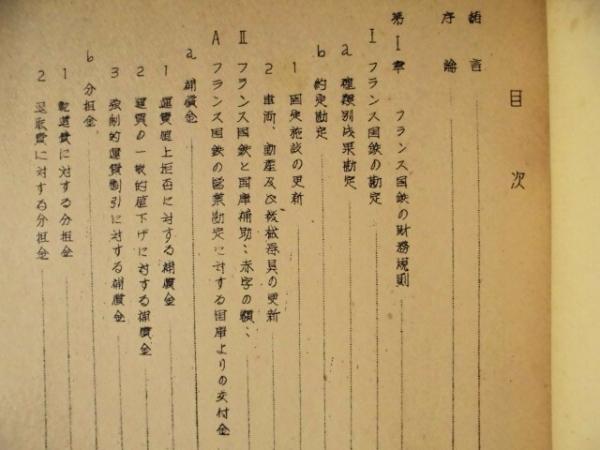 目次
緒言
序論
第Ⅰ章 フランス国鉄の財務規則
Ⅰ フランス国鉄の勘定
a 種類別成果勘定
b 約定勘定
1 固定施設の更新
2 車両、動産及び機械器具の更新
Ⅱ フランス国鉄と国庫補助:赤字の額:
A フランス国鉄の営業勘定に対する国庫よりの交付金
a 補償金
1 運賃値上拒否に対する補償金
2 運賃の一般的値下げに対する補償金
3 強制的運賃割引に対する補償金
b 分担金
1 軌道費に対する分担金
2 退職費に対する分担金